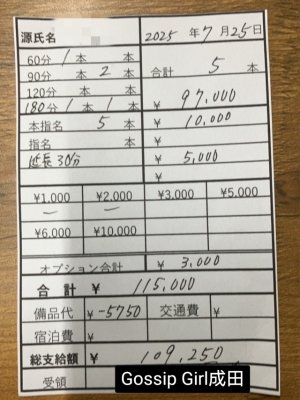 源氏名 2025年7月25日
60分 1本 本
90分 2本 合計 5本
120分 本 本
180分 1本 1本 ¥ 97,000
本指名 5本 ¥ 10,000
指名 本 ¥
延長30分 ¥ 5,000
¥
¥1,000 ¥2,000 ¥3,000 ¥5,000
一 一
¥6,000 ¥10,000
オプション合計 ¥ 3,000
合計 ¥ 115,000
備品代 ¥-5750 交通費 ¥
宿泊費 ¥ ¥
総支給額 ¥ 109,250
受領
Gossip Girl成田